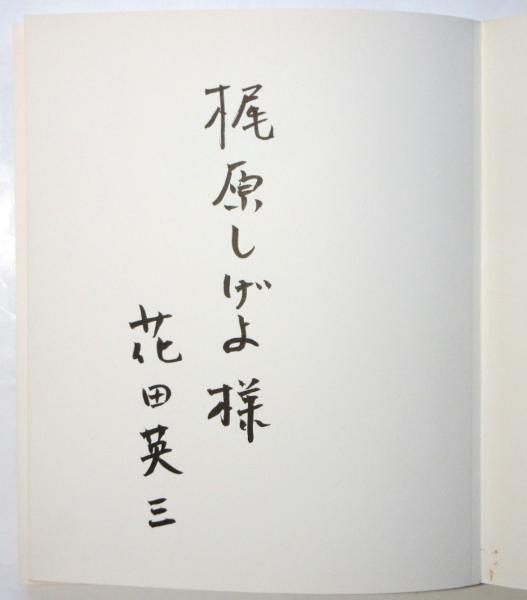 梶原しげよ様
花田英三